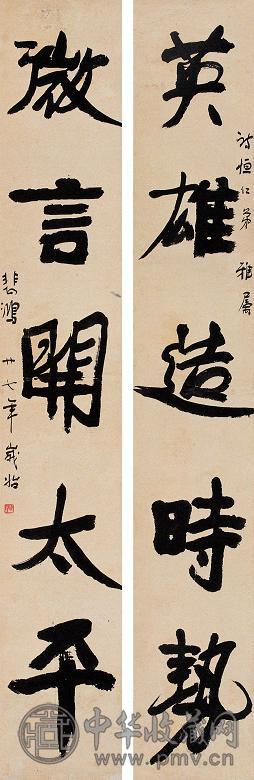 英雄造時勢
恒仁弟雅属
微言開太平
悲鴻
廿七年歲始
中华收藏网
www.pmv.cn